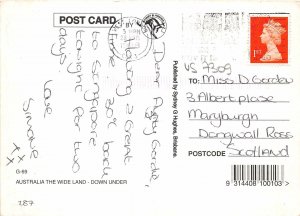 POST CARD
BY
1ST
VS 7309
Dear Aunty Gordie,
Having a great
time 30c beach
to Singapore
tonight for two
days
Love
Simone
xx
Published by Sydney G Hughes, Brisbane.
TO: Miss D Gordon
3 Albert place
Maryburgh
Dingwall Ross
POSTCODE Scotland
G-69
AUSTRALIA THE WIDE LAND - DOWN UNDER
9 314408 100103 >
287